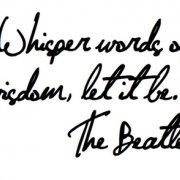 Whisper words o
isdom, let it be.
The Beatle